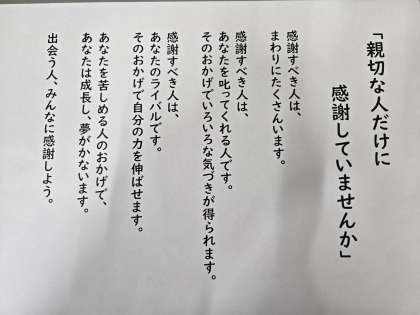 「親切な人だけに
感謝していませんか」
感謝すべき人は、
まわりにたくさんいます。
感謝すべき人は、
あなたを叱ってくれる人です。
そのおかげでいろいろな気づきが得られます。
感謝すべき人は、
あなたのライバルです。
そのおかげで自分の力を伸ばせます。
あなたを苦しめる人のおかげで、
あなたは成長し、夢がかないます。
出会う人、みんなに感謝しよう。